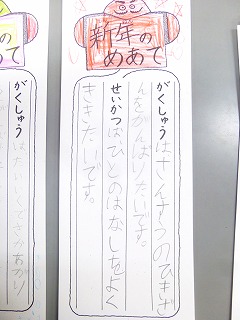 新年の
めあて
がくしゅうはさんすうのひきざ
んをがんばりたいです。
せいかつは、ひとのはなしをよく
ききたいです。
の
て
がくしゅう